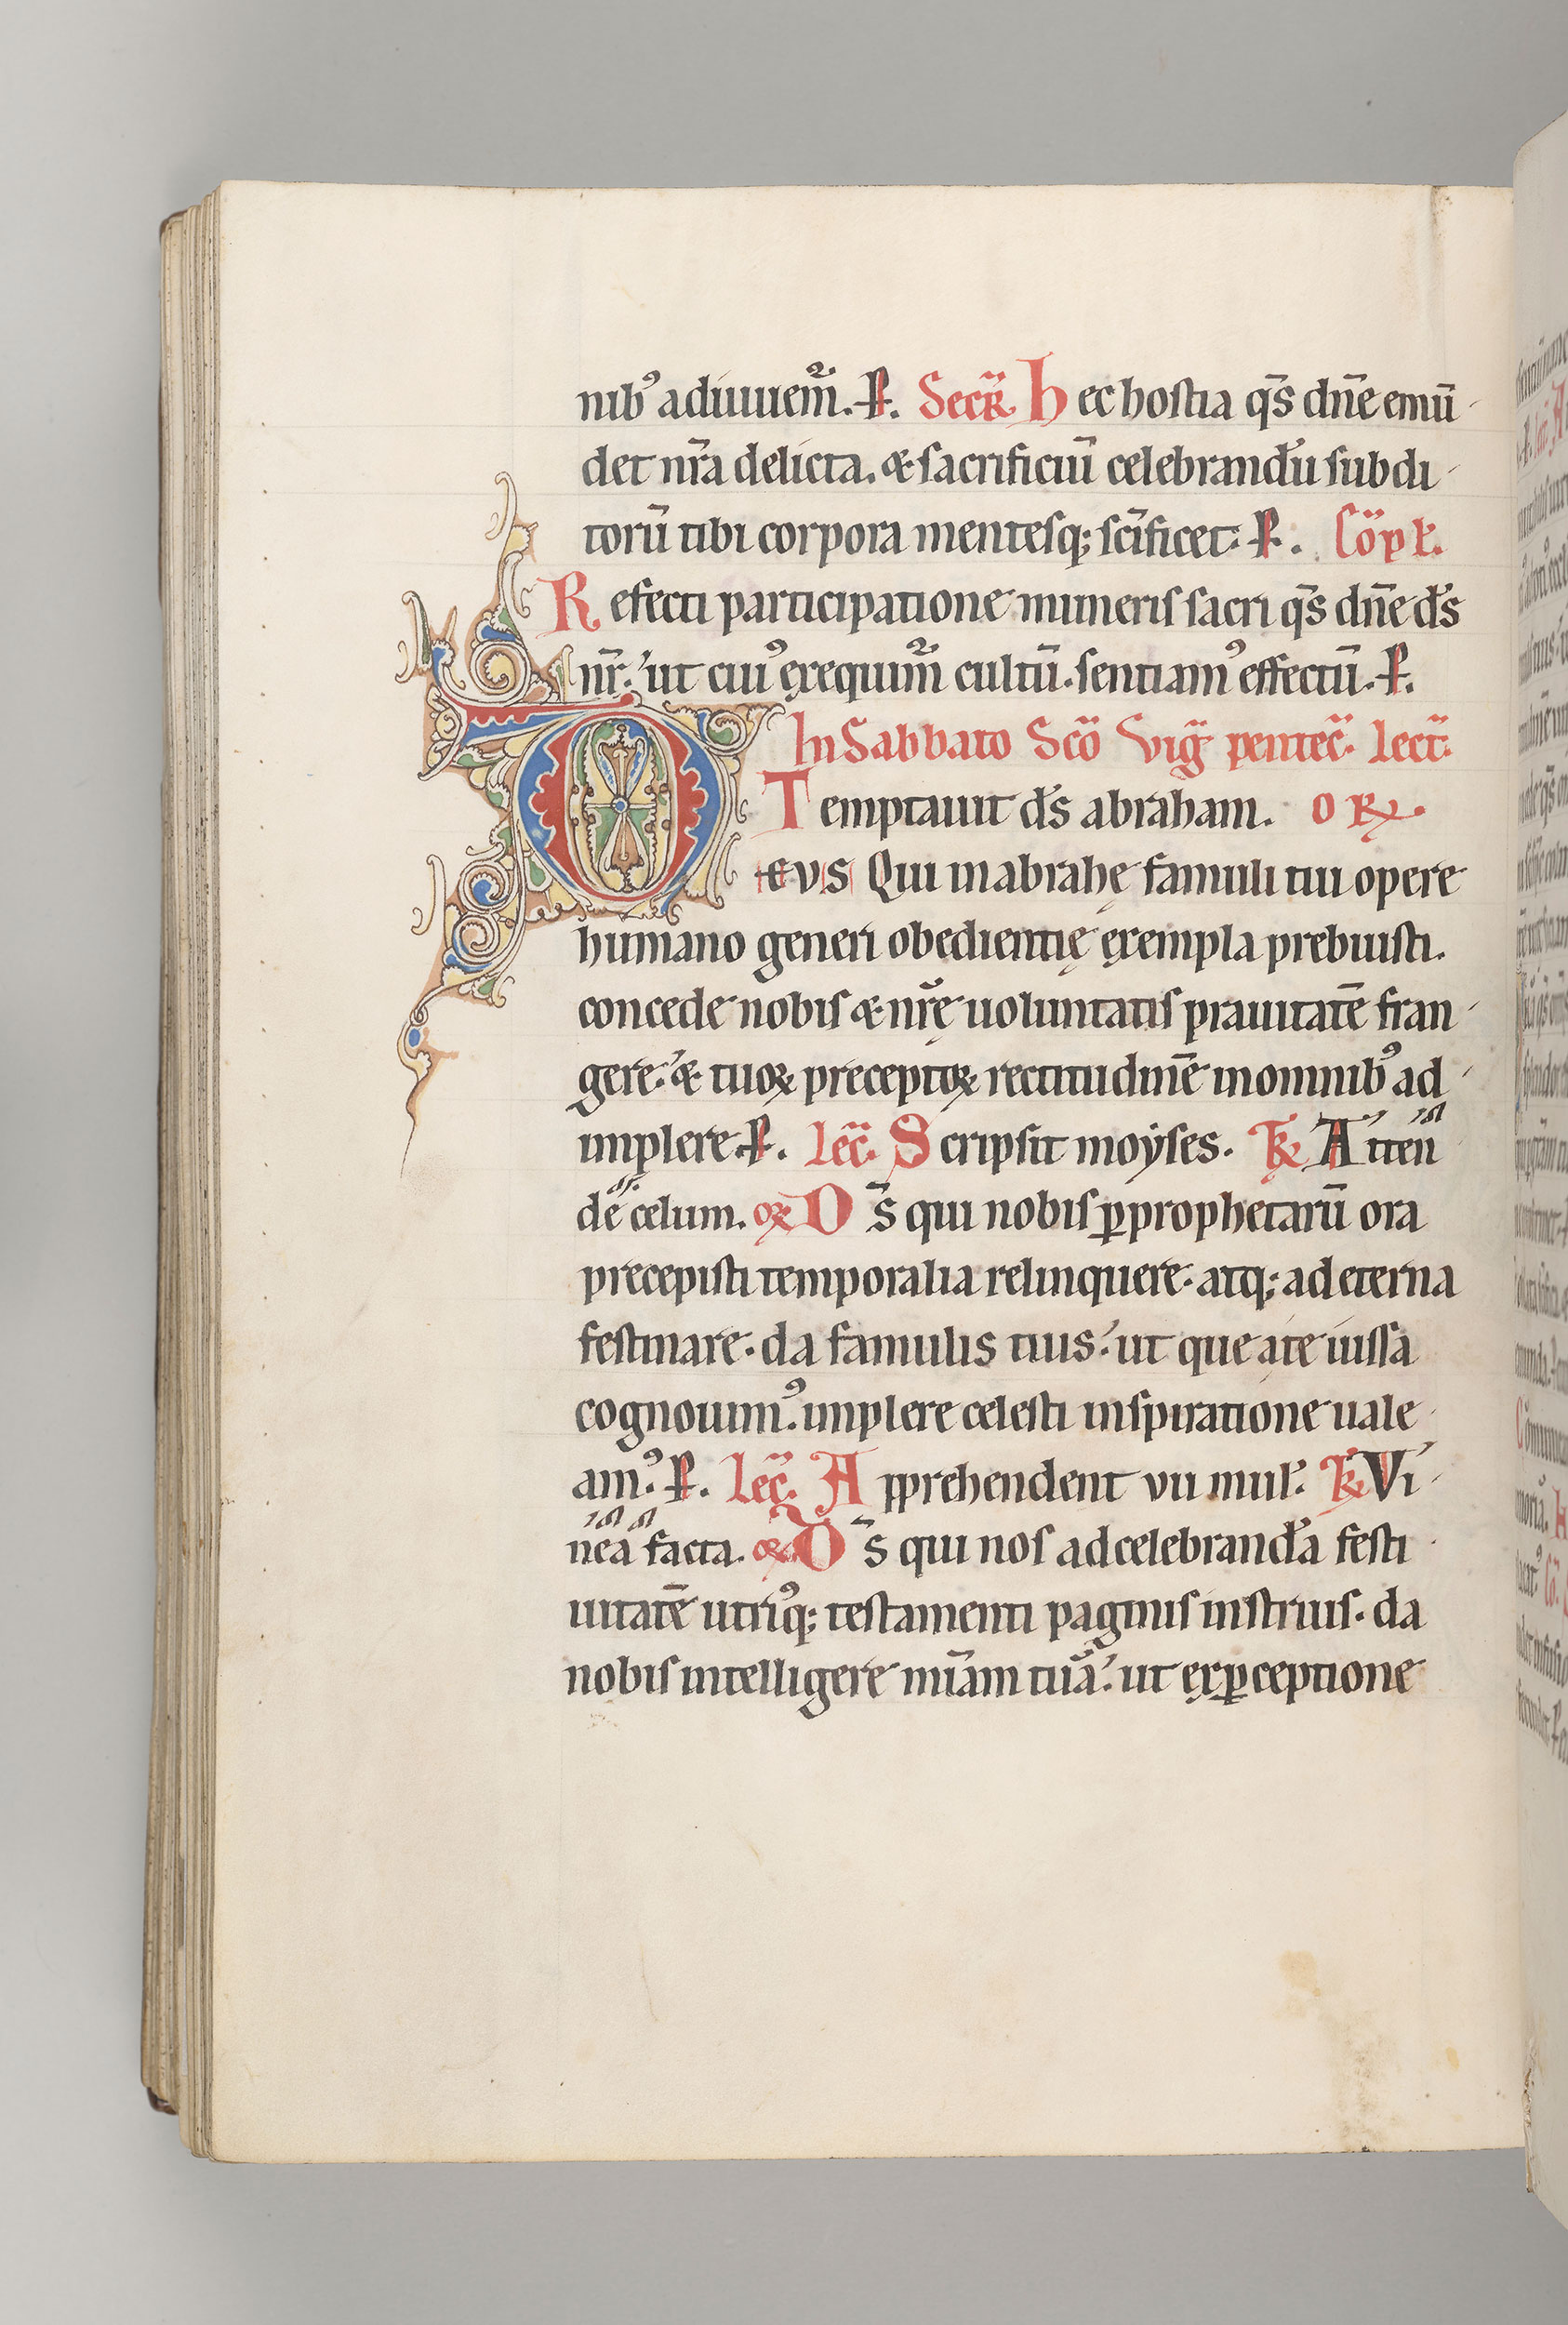 nibꝰ adiuuem̃. P. Secr̃. Hec hostia q̄s dn̄e emū
det nr̄a delicta. & sacrificiū celebrandū subdi
torū tibi corpora mentesq; sc̄ificet. P. Co͞pl.
Refecti participatione muneris sacri q̄s dn̄e d̄s
nr̄. ut cuiꝰ exequim̃ cultū. sentiamꝰ effectū. P.
In Sabbato Sc̄o Vig̃ pentec̃. Lect̃.
Temptauit d̄s abraham. OR̃.
DEVS Qui in abrahę famuli tui opere
humano generi obedientię exempla prebuisti.
concede nobis & nr̄ę uoluntatis prauitatē fran
gere. & tuoꝝ preceptoꝝ rectitudinē in omnibꝰ ad
implere. P. Lec̃. Scripsit moẏses. Tr̃ Atten
de celum. oꝝ D̄s qui nobis ꝑ prophetarū ora
precepisti temporalia relinquere. atq; ad eterna
festinare. da famulis tuis. ut que a te iussa
cognouimꝰ. implere celesti inspiratione uale
amꝰ. P. Lec̃. Apprehendent vii mul̓. Tr̃ Vi
nea facta. oꝝ D̄s qui nos ad celebrandā festi
uitatē utriꝰq; testamenti paginis instruis. da
nobis intelligere mīam tuā. ut ex ꝑceptione